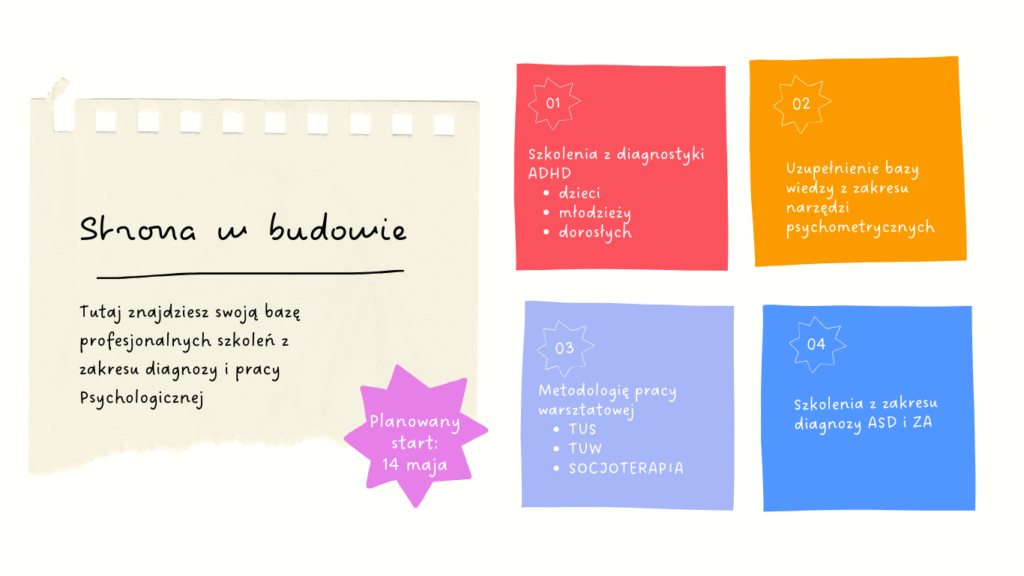 Strona w budowie
Tutaj znajdziesz swoją bazę
profesjonalnych szkoleń z
zakresu diagnozy i pracy
Psychologicznej
Planowany
start:
14 maja
01
Szkolenia z diagnostyki
ADHD
• dzieci
• młodzieży
• dorosłych
02
Uzupełnienie bazy
wiedzy z zakresu
narzędzi
psychometrycznych
03
Metodologię pracy
warsztatowej
• TUS
• TUW
• SOCJOTERAPIA
04
Szkolenia z zakresu
diagnozy ASD i ZA